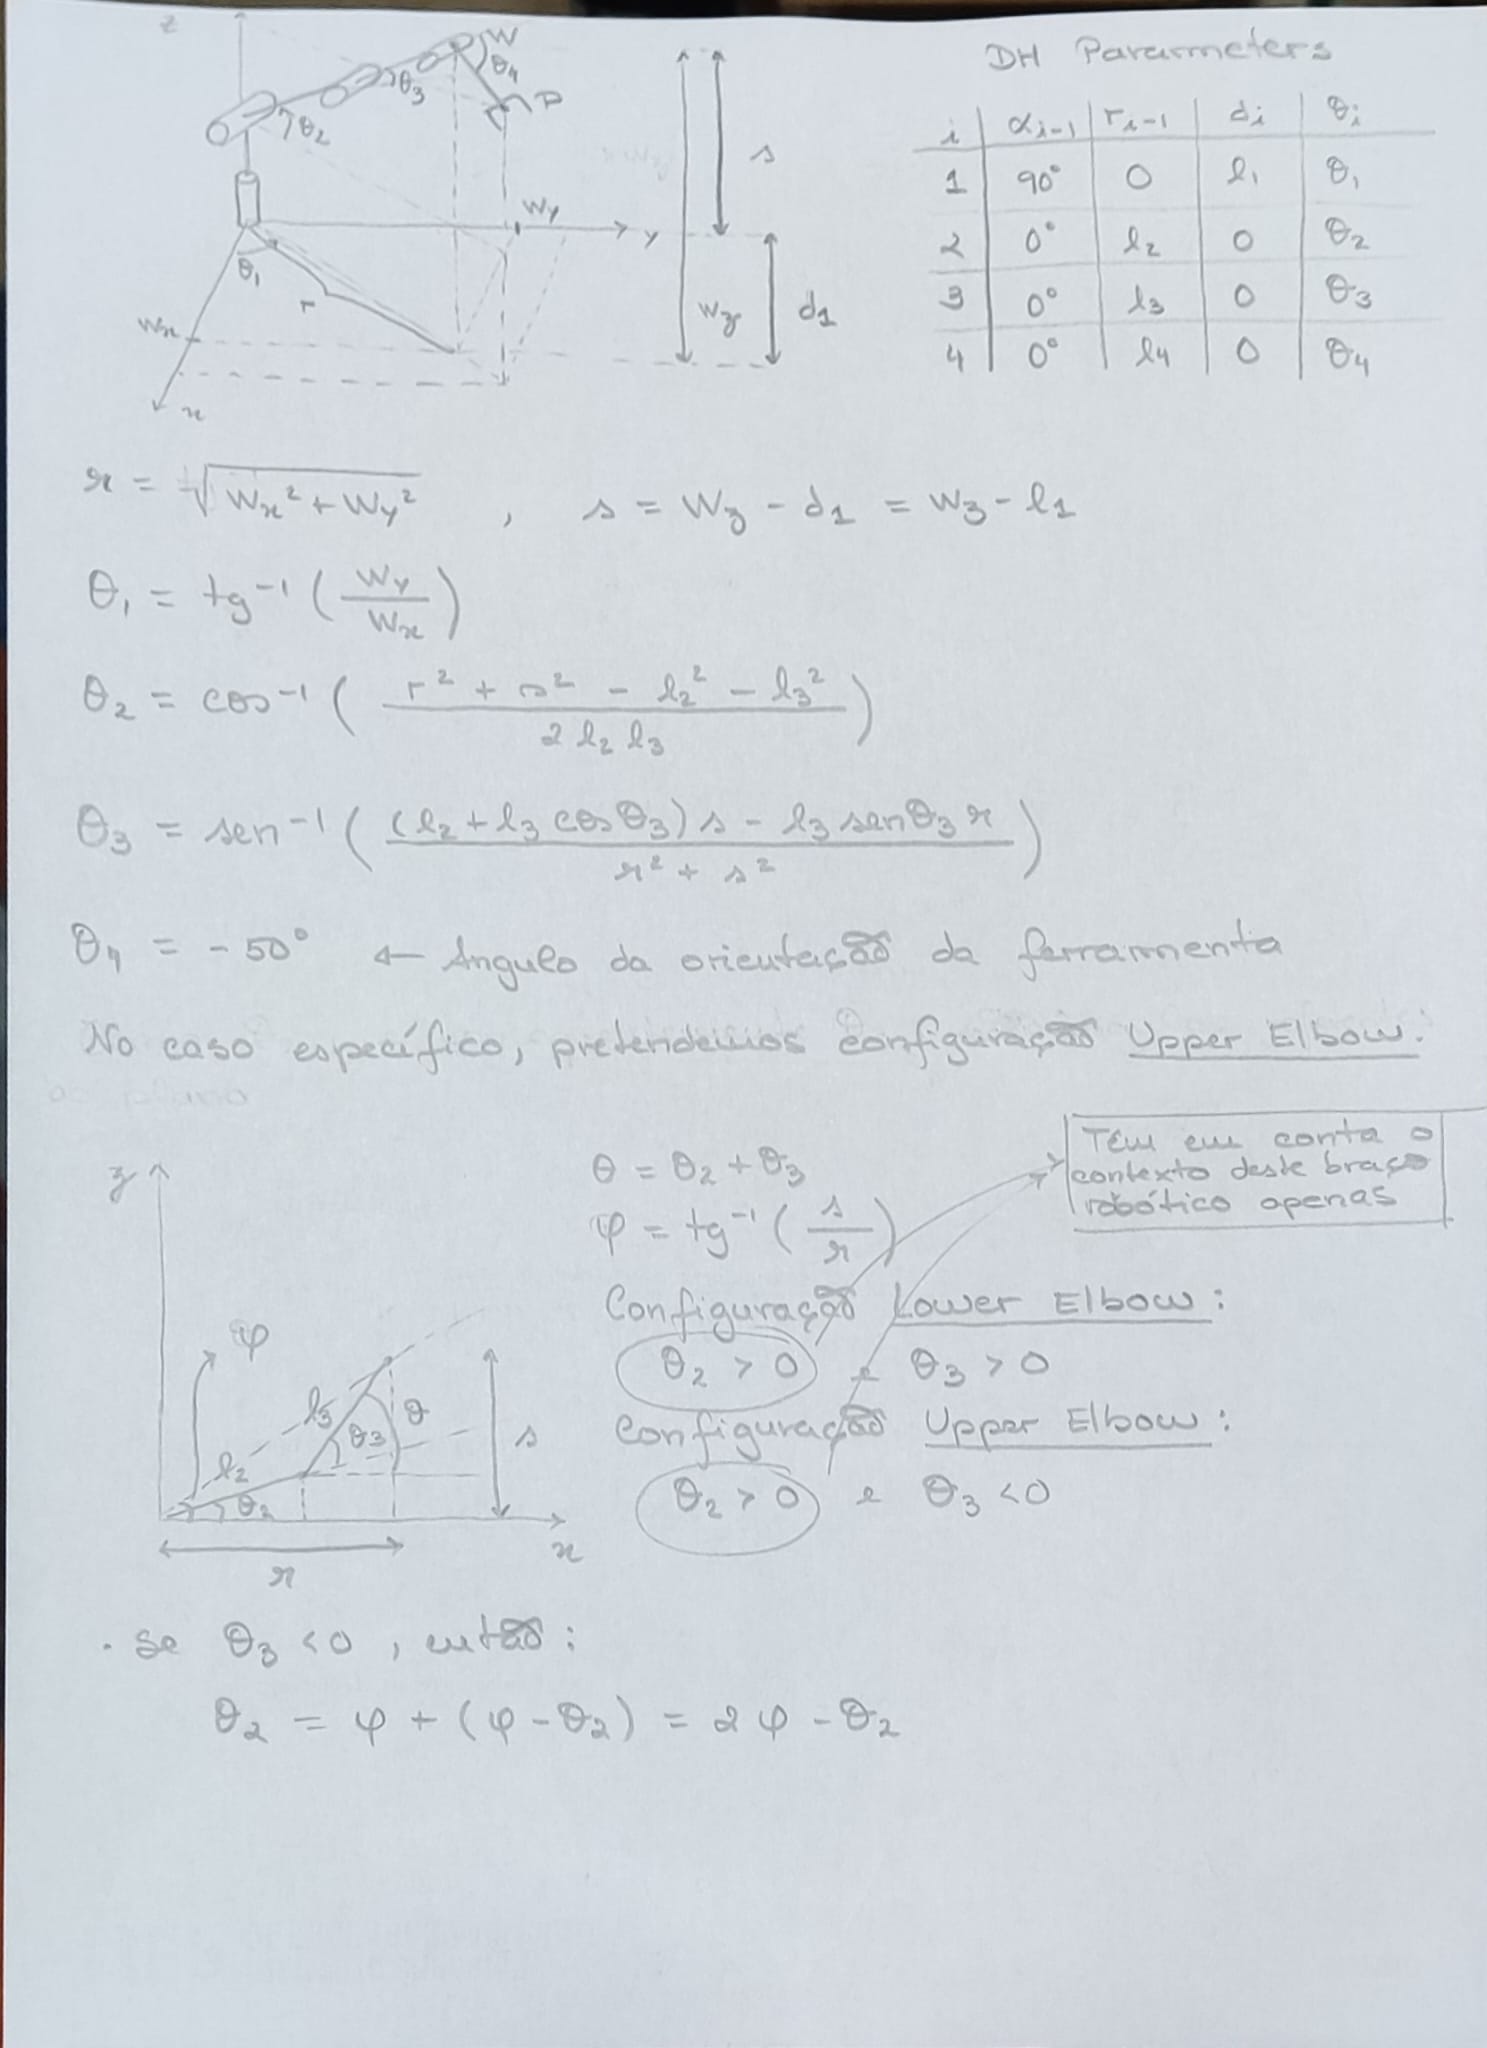 z
W
θ₄
P
θ₃
θ₂
s
Wy
y
θ₁
r
Wx
x
Wz
d₁
DH Parameters
i | αi-1 | ri-1 | di | θi
1 | 90° | 0 | l₁ | θ₁
2 | 0° | l₂ | 0 | θ₂
3 | 0° | l₃ | 0 | θ₃
4 | 0° | l₄ | 0 | θ₄
r = +√(Wx² + Wy²) , s = Wz - d₁ = Wz - l₁
θ₁ = tg⁻¹ (Wy / Wx)
θ₂ = cos⁻¹ ((r² + s² - l₂² - l₃²) / (2 l₂ l₃))
θ₃ = sen⁻¹ (((l₂ + l₃ cos θ₃) s - l₃ sen θ₃ r) / (r² + s²))
θ₄ = -50° ← Ângulo da orientação da ferramenta
No caso específico, pretendemos configuração Upper Elbow.
ao plano
Têm em conta o
contexto deste braço
robótico apenas
θ = θ₂ + θ₃
φ = tg⁻¹ (s / r)
Configuração Lower Elbow:
θ₂ > 0 e θ₃ > 0
Configuração Upper Elbow:
θ₂ > 0 e θ₃ < 0
z
φ
l₃
θ
θ₃
l₂
s
θ₂
x
r
. se θ₃ < 0 , então:
θ₂ = φ + (φ - θ₂) = 2φ - θ₂